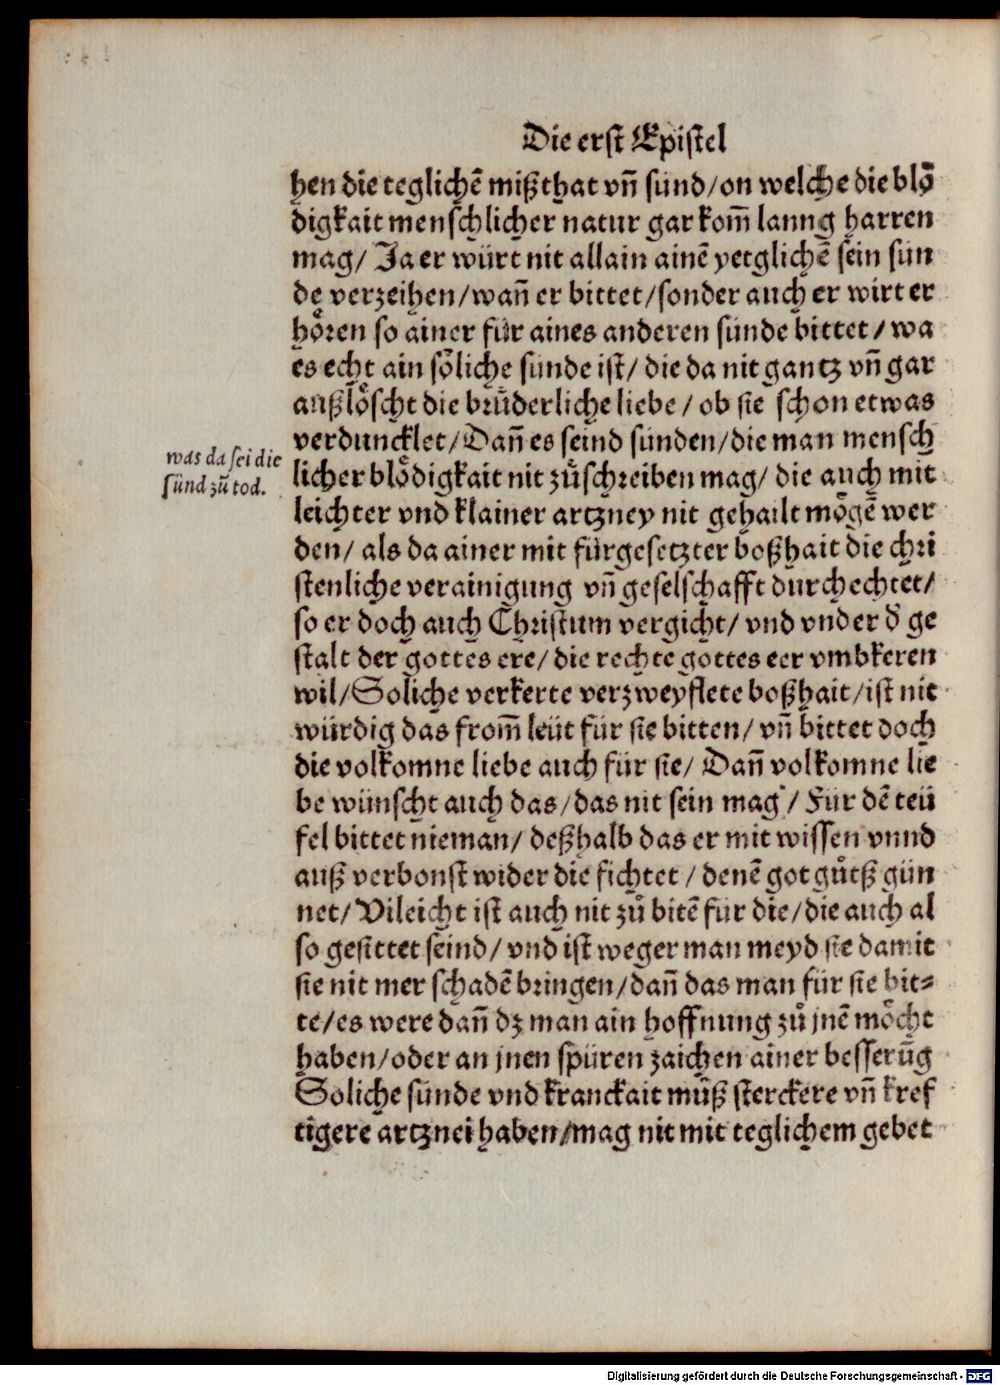 Die erst Epistel
hen die teglichē mißthat vñ sünd/on welche die blö
digkait menschlicher natur gar kom̃ lanng harren
mag/ Ja er würt nit allain ainē yetglichē sein sün
de verzeihen/wañ er bittet/sonder auch er wirt er
hören so ainer für aines anderen sünde bittet/wa
es echt ain söliche sünde ist/ die da nit gantz vñ gar
außlöscht die brüderliche liebe/ ob sie schon etwas
verduncklet/Dañ es seind sünden/die man mensch
was da sei die
sünd zů tod.
licher blödigkait nit zůschreiben mag/ die auch mit
leichter vnd klainer artzney nit gehailt mögē wer
den/ als da ainer mit fürgesetzter boßhait die chri
stenliche verainigung vñ geselschafft durchechtet/
so er doch auch Christum vergicht/ vnd vnder d̄ ge
stalt der gottes ere/ die rechte gottes eer vmbkeren
wil/Soliche verkerte verzweyflete boßhait/ist nit
würdig das from̃ leüt für sie bitten/ vñ bittet doch
die volkomne liebe auch für sie/ Dañ volkomne lie
be wünscht auch das/das nit sein mag/ Für dē teü
fel bittet nieman/ deßhalb das er mit wissen vnnd
auß verbonst wider die fichtet/ denē got gůtß gün
net/Vileicht ist auch nit zů bitē für die/die auch al
so gesittet seind/ vnd ist weger man meyd sie damit
sie nit mer schadē bringen/dañ das man für sie bit⸗
te/es were dañ dz man ain hoffnung zů jnē möcht
haben/oder an jnen spüren zaichen ainer besserūg
Soliche sünde vnd kranckait můß sterckere vñ kref
tigere artznei haben/mag nit mit teglichem gebet
Digitalisierung gefördert durch die Deutsche Forschungsgemeinschaft - DFG